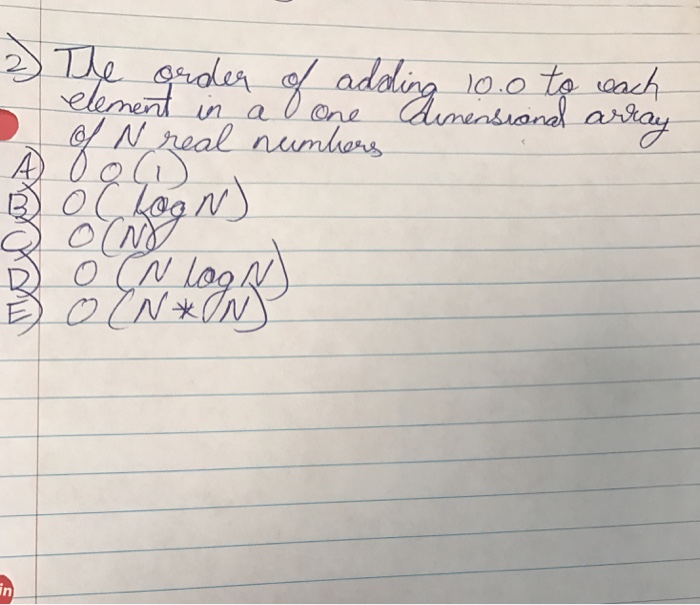 2) The order of adding 10.0 to each
element in a one dimensional array
of N real numbers
A) O(1)
B) O(log N)
C) O(N)
D) O(N log N)
E) O(N*N)
in